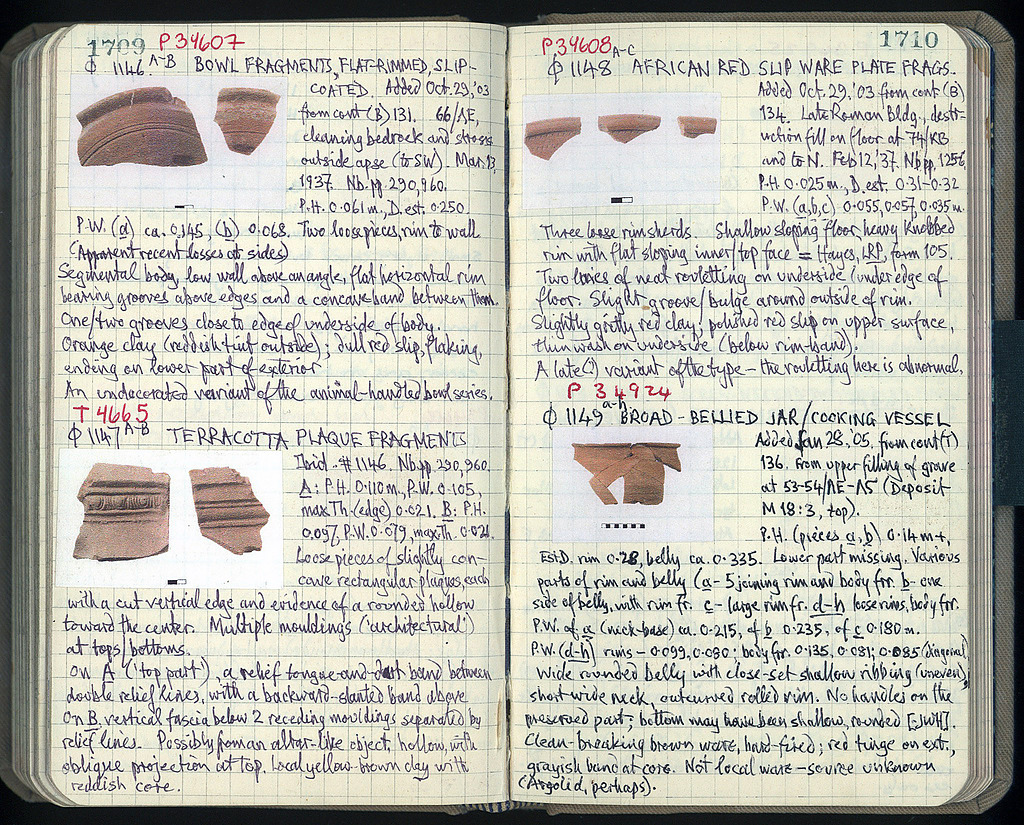 1709 P 34607
ϕ 1146 A-B BOWL FRAGMENTS, FLAT-RIMMED, SLIP-
COATED. Added Oct. 29, '03
from cont (B) 131. 66/ΛE,
cleaning bedrock and
outside apse (to SW). Mar. 13,
1937. Nb. pp. 290, 960.
P.H. 0.061 m., D. est. 0.250.
P.W. (a) ca. 0.145, (b) 0.068. Two loose pieces, rim to wall
(Apparent recent losses at sides)
Segmental body, low wall above an angle, flat horizontal rim
bearing grooves above edges and a concave band between them.
One/two grooves close to edge of underside of body.
Orange clay (reddish tint outside); dull red slip, flaking,
ending on lower part of exterior
An undecorated variant of the animal-handled bowl series.
T 4665
ϕ 1147 A-B TERRACOTTA PLAQUE FRAGMENTS
Ibid. #1146. Nb. pp. 290, 960.
A: P.H. 0.110 m., P.W. 0.105,
max Th. (edge) 0.021. B: P.H.
0.097, P.W. 0.079, max Th. 0.021
Loose pieces of slightly con-
cave rectangular plaques, each
with a cut vertical edge and evidence of a rounded hollow
toward the center. Multiple mouldings ('architectural')
at tops/bottoms.
On A ('top part'), a relief tongue-and-dart band between
double relief lines, with a backward-slanted band above
On B, vertical fascia below 2 receding mouldings separated by
relief lines. Possibly from an altar-like object, hollow, with
oblique projection at top. Local yellow-brown clay with
reddish core.
P 34608 A-C 1710
ϕ 1148 AFRICAN RED SLIP WARE PLATE FRAGS.
Added Oct. 29, '03 from cont (B)
134. Late Roman Bldg., destr-
uction fill on floor at 74/KB
and to N. Feb 12, '37. Nb pp. 1256
P.H. 0.025 m., D. est. 0.31-0.32
P.W. (a,b,c) 0.055, 0.057, 0.035 m.
Three loose rimsherds. Shallow sloping floor, heavy knobbed
rim with flat sloping inner/top face = Hayes, LRP, form 105.
Two lines of neat rouletting on underside (under edge of
floor. Slight groove/bulge around outside of rim.
Slightly gritty red clay, polished red slip on upper surface,
thin wash on underside (below rim-hand).
A late(?) variant of the type – the rouletting here is abnormal.
P 34924
ϕ 1149 a-h BROAD-BELLIED JAR/COOKING VESSEL
Added Jan 28, '05, from cont (T)
136. From upper filling of grave
at 53-54/ΛE-ΛS (Deposit
M 18:3, top).
P.H. (pieces a, b) 0.14 m+,
Est D. rim 0.28, belly ca. 0.335. Lower part missing. Various
parts of rim and belly (a - 5 joining rim and body frr. b - one
side of belly, with rim fr. c - large rim fr. d-h loose rims, body frr.
P.W. of a (neck-base) ca. 0.215, of b 0.235, of c 0.180 m.
P.W. (d-h) rims – 0.099, 0.080; body frr. 0.135, 0.081, 0.085 (diagonal)
Wide rounded belly with close-set shallow ribbing (uneven),
short wide neck, outcurved rolled rim. No handles on the
preserved part; bottom may have been shallow, rounded [JWH].
Clean-breaking brown ware, hard-fired; red tinge on ext.,
grayish band at core. Not local ware – source unknown
(Argolid, perhaps).